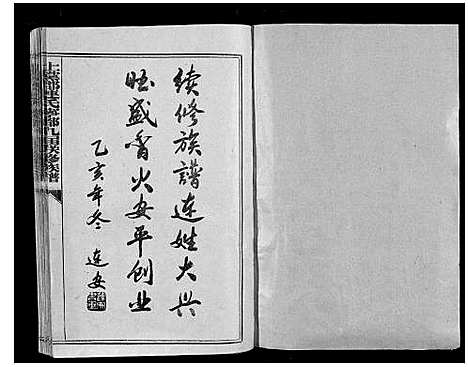 续修族谱连姓大兴
旺盛香火安平创业
乙亥年冬 连安